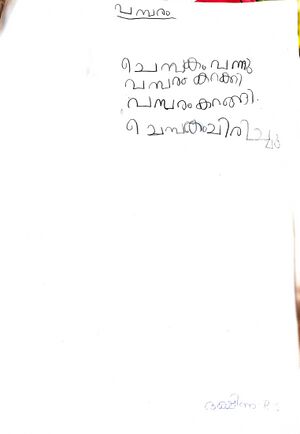 പമ്പരം
ചെമ്പകം വന്നു
പമ്പരം കറക്കി
പമ്പരം കറങ്ങി.
ചെമ്പകം ചിരിച്ചു